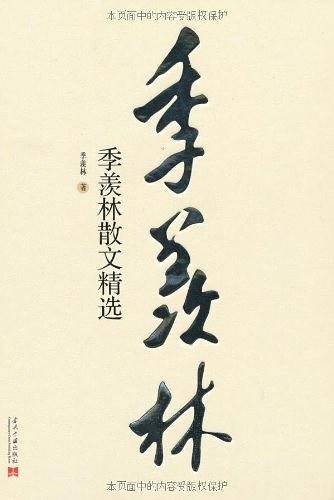 本页面中的内容受版权保护
季羡林
季羡林散文精选
季羡林 著
当代中国出版社
本页面中的内容受版权保护